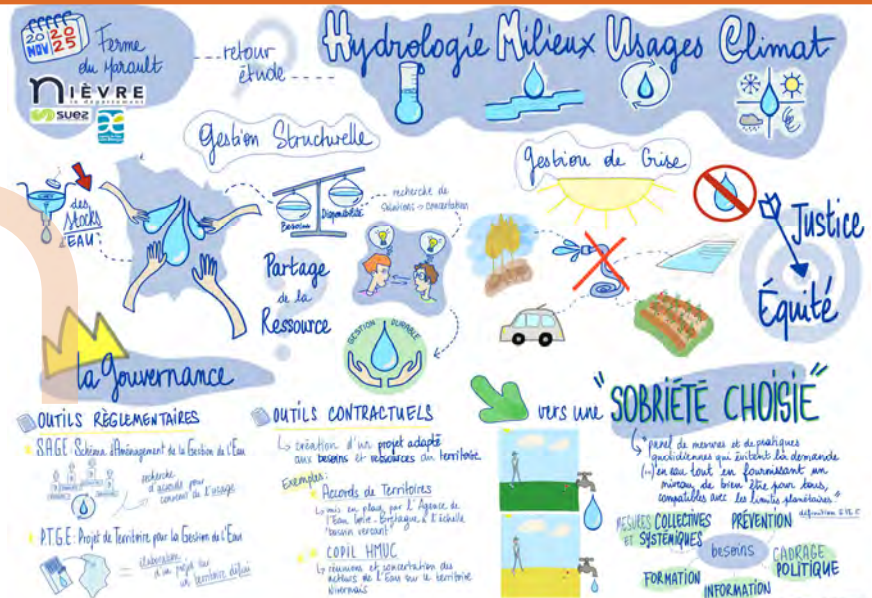 20 20
NOV 25
Ferme
du Marault
NIÈVRE
le département
suez
retour
étude
Hydrologie Milieux Usages Climat
Gestion Structurelle
Gestion de Crise
des
stocks
EAU
Besoins
Disponibilité
recherche de
solutions → concertation
Partage
de la
Ressource
GESTION DURABLE
Justice
Équité
la Gouvernance
OUTILS RÈGLEMENTAIRES
S.A.G.E : Schéma d'Aménagement de la Gestion de l'Eau
recherche
d'accords pour
convenir de l'usage
P.T.G.E : Projet de Territoire pour la Gestion de l'Eau
= élaboration
d'un projet sur
un territoire défini
OUTILS CONTRACTUELS
↳ création d'un projet adapté
aux besoins et ressources du territoire.
Exemples :
Accords de Territoires
↳ mis en place par l'Agence de
l'Eau Loire-Bretagne à l'échelle
"bassin versant"
COPIL HMUC
↳ réunions et concertation des
acteurs de l'Eau sur le territoire
Nivernais
vers une "SOBRIÉTÉ CHOISIE"
↳ "panel de mesures et de pratiques
quotidiennes qui évitent la demande
(...) en eau tout en fournissant un
niveau de bien être pour tous,
compatibles avec les limites planétaires"
définition GIEC
MESURES COLLECTIVES
ET SYSTÉMIQUES
PRÉVENTION
besoins
CADRAGE
POLITIQUE
FORMATION
INFORMATION